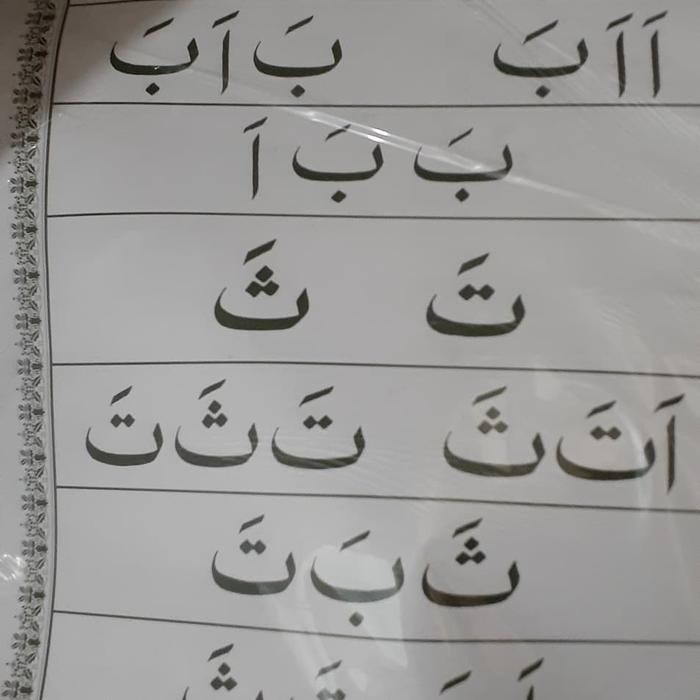 اَ اَ بَ    بَ اَ بَ
بَ بَ اَ
تَ    ثَ
اَ تَ ثَ    تَ ثَ تَ
ثَ بَ تَ